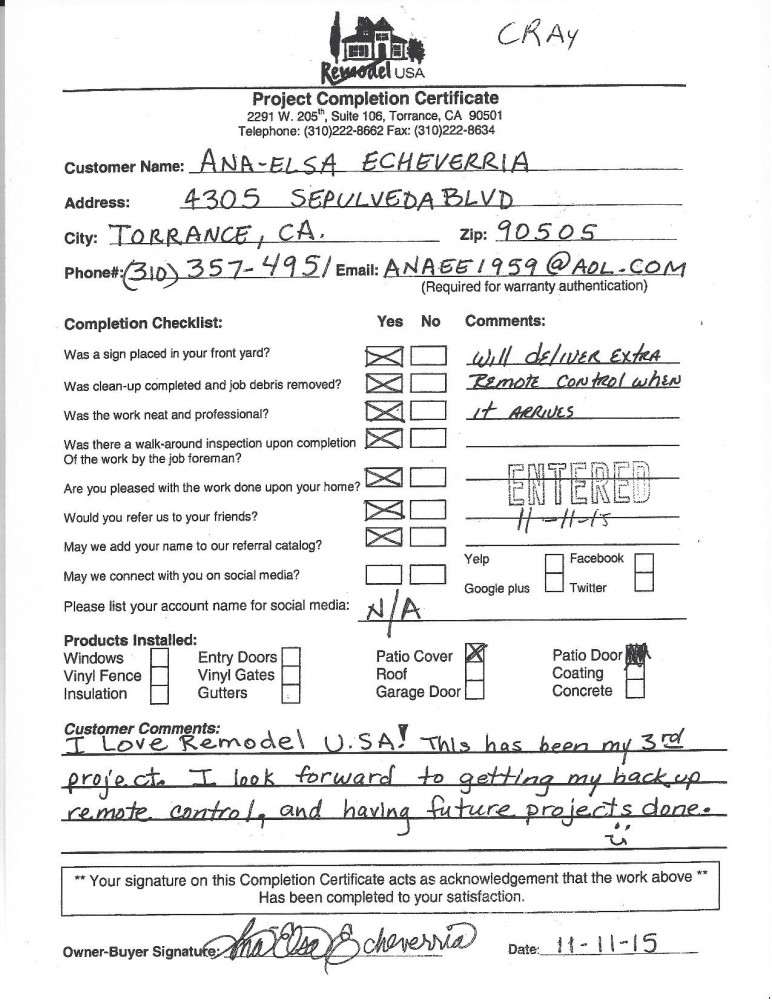 CRAY
Remodel USA
Project Completion Certificate
2291 W. 205th, Suite 106, Torrance, CA 90501
Telephone: (310)222-8662 Fax: (310)222-8634
Customer Name: ANA-ELSA ECHEVERRIA
Address: 4305 SEPULVEDA BLVD
City: TORRANCE, CA. Zip: 90505
Phone#: (310) 357-4951 Email: ANAEE1959@AOL.COM
(Required for warranty authentication)
Completion Checklist: Yes No Comments:
Was a sign placed in your front yard? Will deliver extra
Was clean-up completed and job debris removed? Remote control when
Was the work neat and professional? it ARRIVES
Was there a walk-around inspection upon completion
Of the work by the job foreman?
Are you pleased with the work done upon your home? ENTERED
Would you refer us to your friends? 11-11-15
May we add your name to our referral catalog?
Yelp Facebook
May we connect with you on social media?
Google plus Twitter
Please list your account name for social media: N/A
Products Installed:
Windows Entry Doors Patio Cover Patio Door
Vinyl Fence Vinyl Gates Roof Coating
Insulation Gutters Garage Door Concrete
Customer Comments:
I Love Remodel U.SA! This has been my 3rd
project. I look forward to getting my back up
remote control, and having future projects done.
** Your signature on this Completion Certificate acts as acknowledgement that the work above **
Has been completed to your satisfaction.
Owner-Buyer Signature: Ana Elsa Echeverria Date: 11-11-15